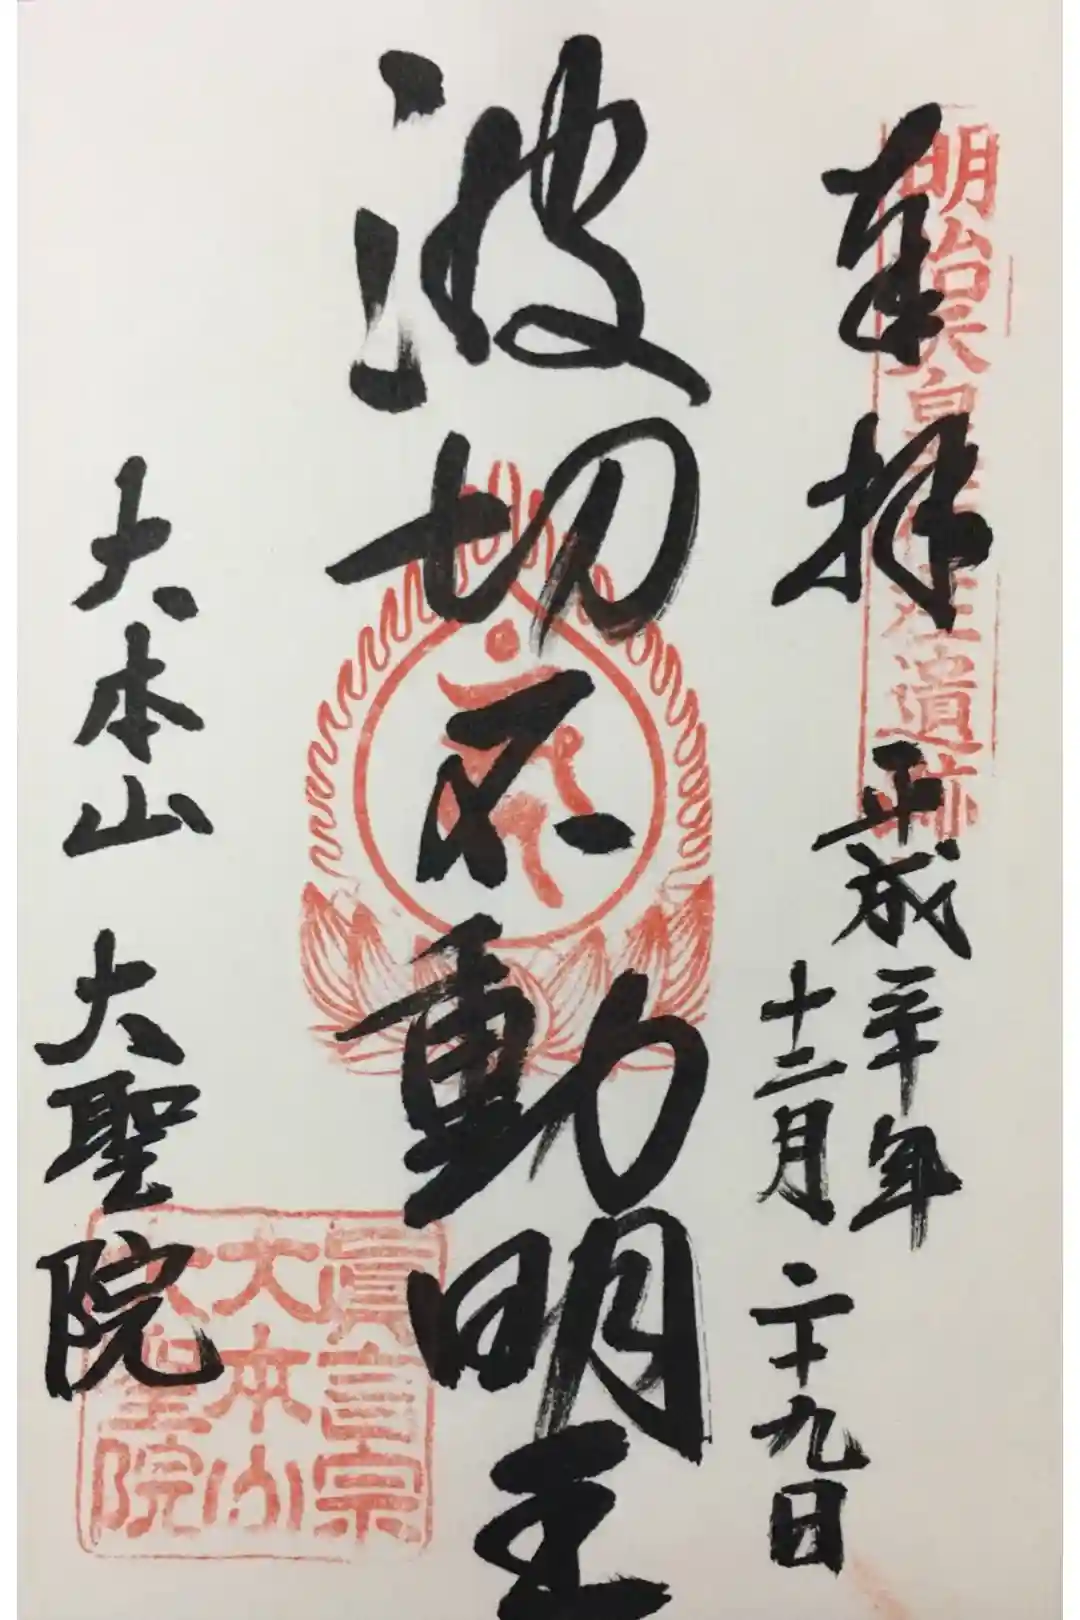 明治天皇
遺跡
奉拝
平成三十年
十二月二十九日
波切不動明王
大本山 大聖院
眞言宗
大本山
大聖院